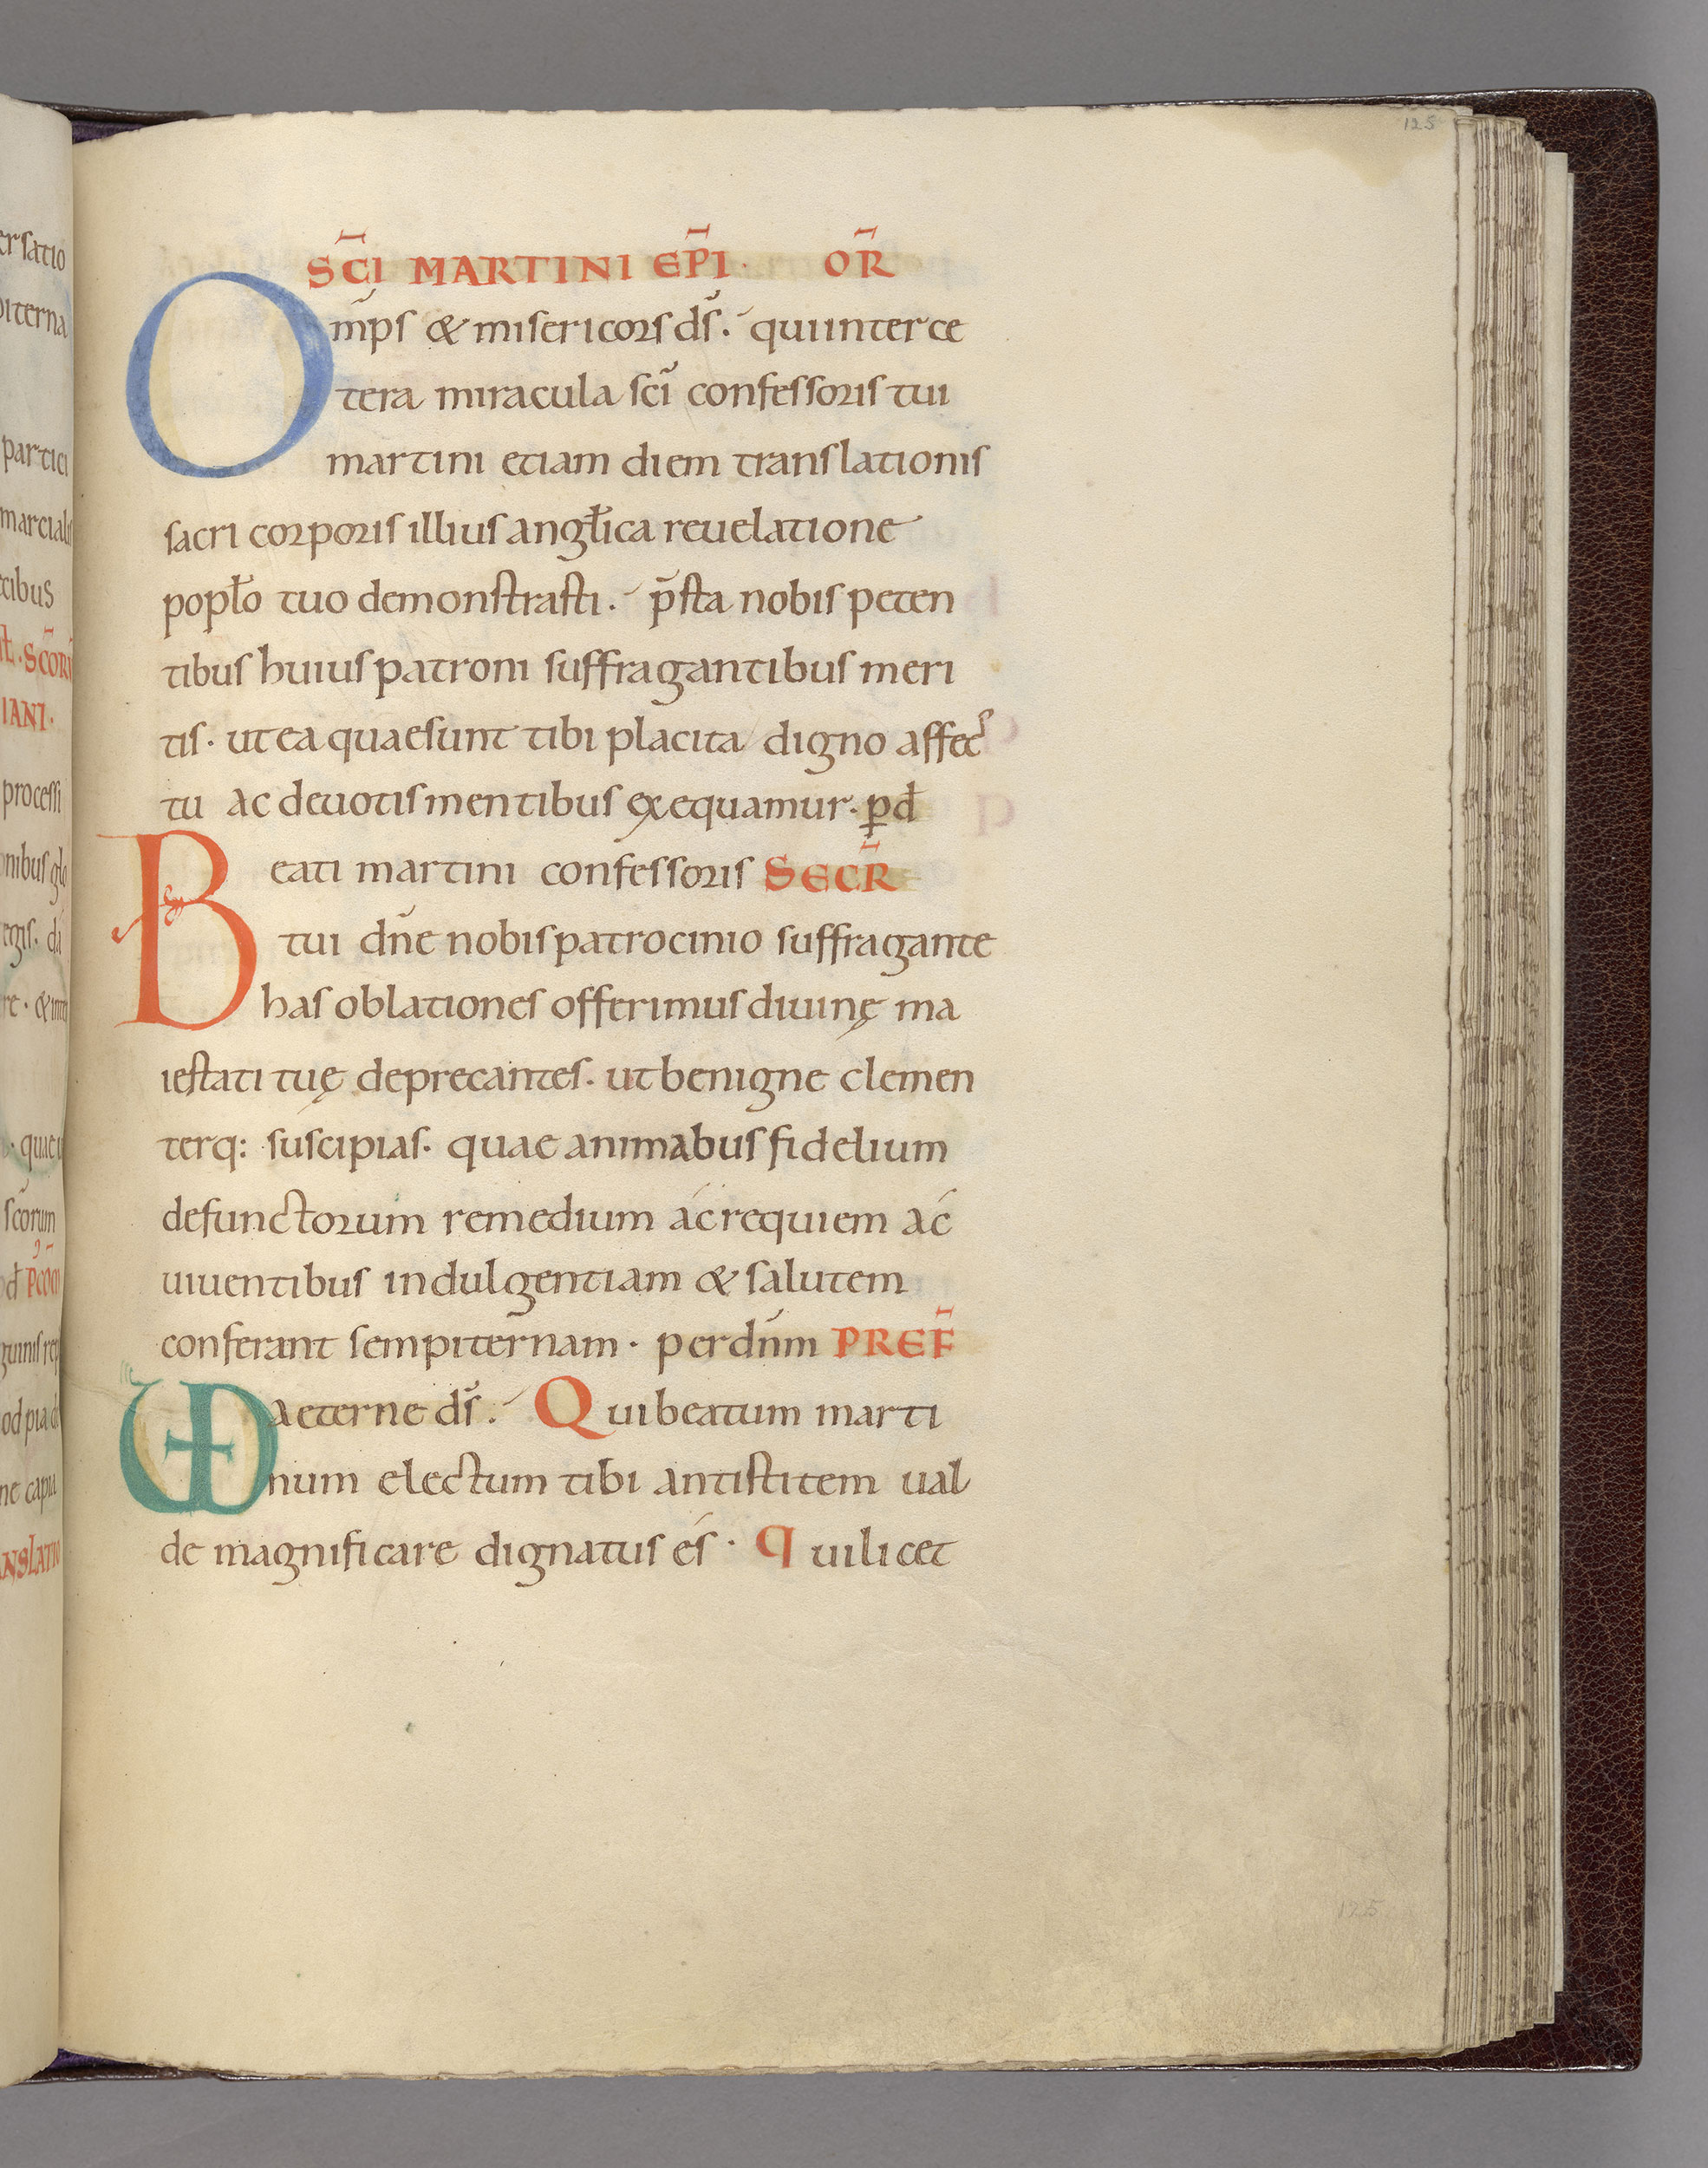 125
SC̄I MARTINI EP̄I · OR̄
Om̄ps & misericors ds̄. qui inter ce
tera miracula sc̄i confessoris tui
martini etiam diem translationis
sacri corporis illius angłica reuelatione
popło tuo demonstrasti. p̄sta nobis peten
tibus huius patroni suffragantibus meri
tis· ut ea quae sunt tibi placita digno affec
tu ac deuotis mentibus exequamur· ꝑ đ
Beati martini confessoris SECR̄
tui dn̄e nobis patrocinio suffragante
has oblationes offerimus diuinę ma
iestati tuę deprecantes· ut benigne clemen
terq: suscipias· quae animabus fidelium
defunctorum remedium ác requiem ác
uiuentibus indulgentiam & salutem
conferant sempiternam · per dn̄m PREF̄
VD aeterne ds̄. Qui beatum marti
num electum tibi antistitem ual
de magnificare dignatus és · qui licet
125
ersatio
piterna
partici
marciali
cibus
SC̄OR̄
IANI·
processi
onibus
egis.
re · &
· quae
sc̄orum
guinis
od pia
ne capia
ANSLATIO